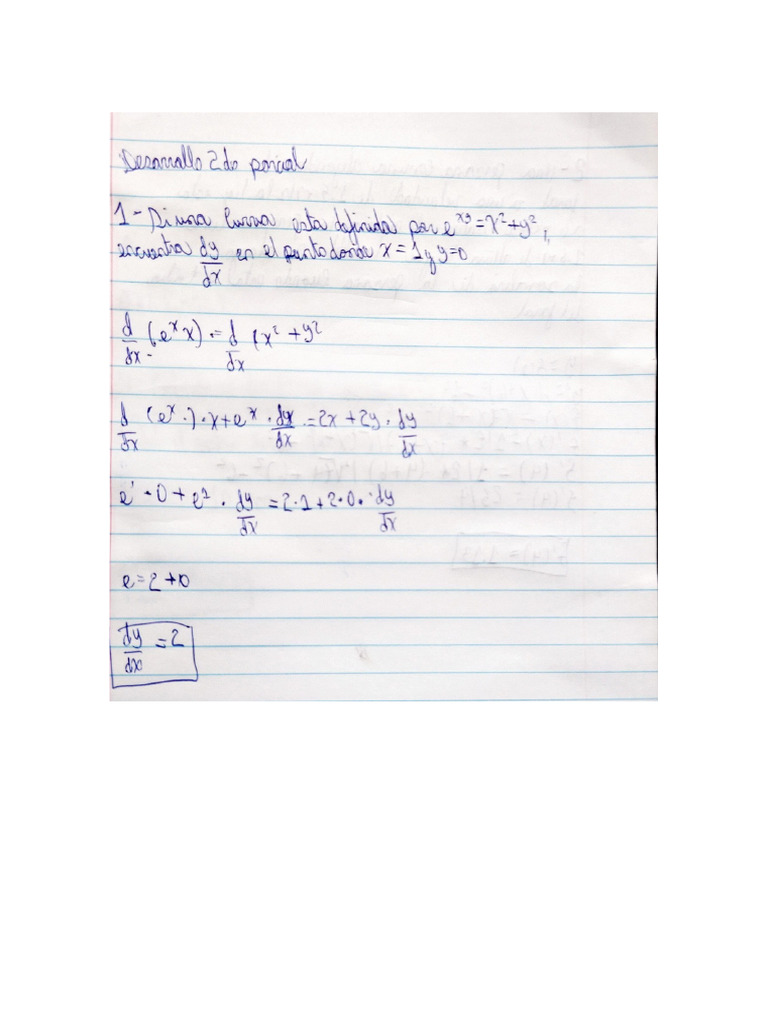 Desarrollo 2do parcial
1 - Si una curva esta definida por e^xy = x² + y²,
encuentra dy/dx en el punto donde x = 1 y y = 0
d/dx (e^x x) = d/dx (x² + y²
d/dx (e^x ·) · x + e^x · dy/dx = 2x + 2y · dy/dx
e¹ · 0 + e¹ · dy/dx = 2 · 1 + 2 · 0 · dy/dx
e = 2 + 0
dy/dx = 2